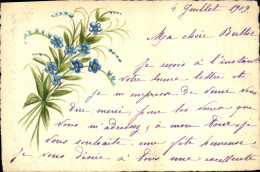 4 Juillet 1909
Ma chère Berthe
Je reçois à l'instant
votre bonne lettre et
je m'empresse de venir vous
dire merci pour les voeux que
vous m'adressez, à mon tour je
vous souhaite une fête heureuse
je vous désire à tous une excellente